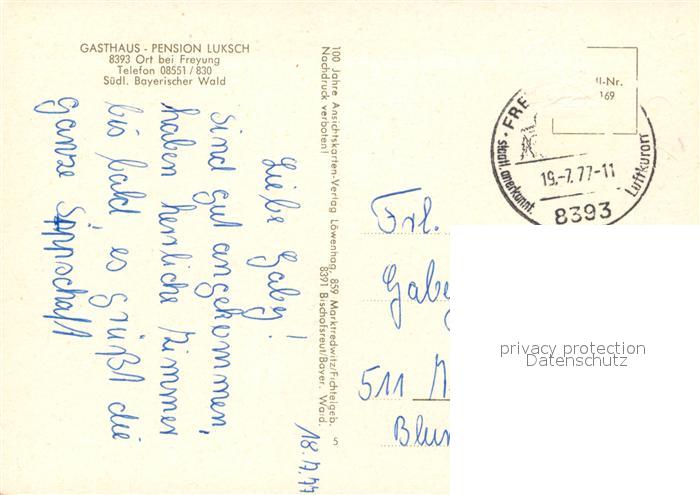 GASTHAUS - PENSION LUKSCH
8393 Ort bei Freyung
Telefon 08551/830
Südl. Bayerischer Wald
18.7.77
Liebe Gaby!
Sind gut angekommen,
haben herrliche Zimmer
bis bald, es grüßt die
ganze Sippschaft
100 Jahre Ansichtskarten-Verlag Löwenhag, 859 Marktredwitz/Fichtelgeb.
Nachdruck verboten! 8391 Bischofsreut/Bayer. Wald.
5
ll-Nr.
169
FRE
staatl. anerkannt.
19.-7.77-11
Luftkurort
8393
Frl.
Gaby
511
Blum
privacy protection
Datenschutz